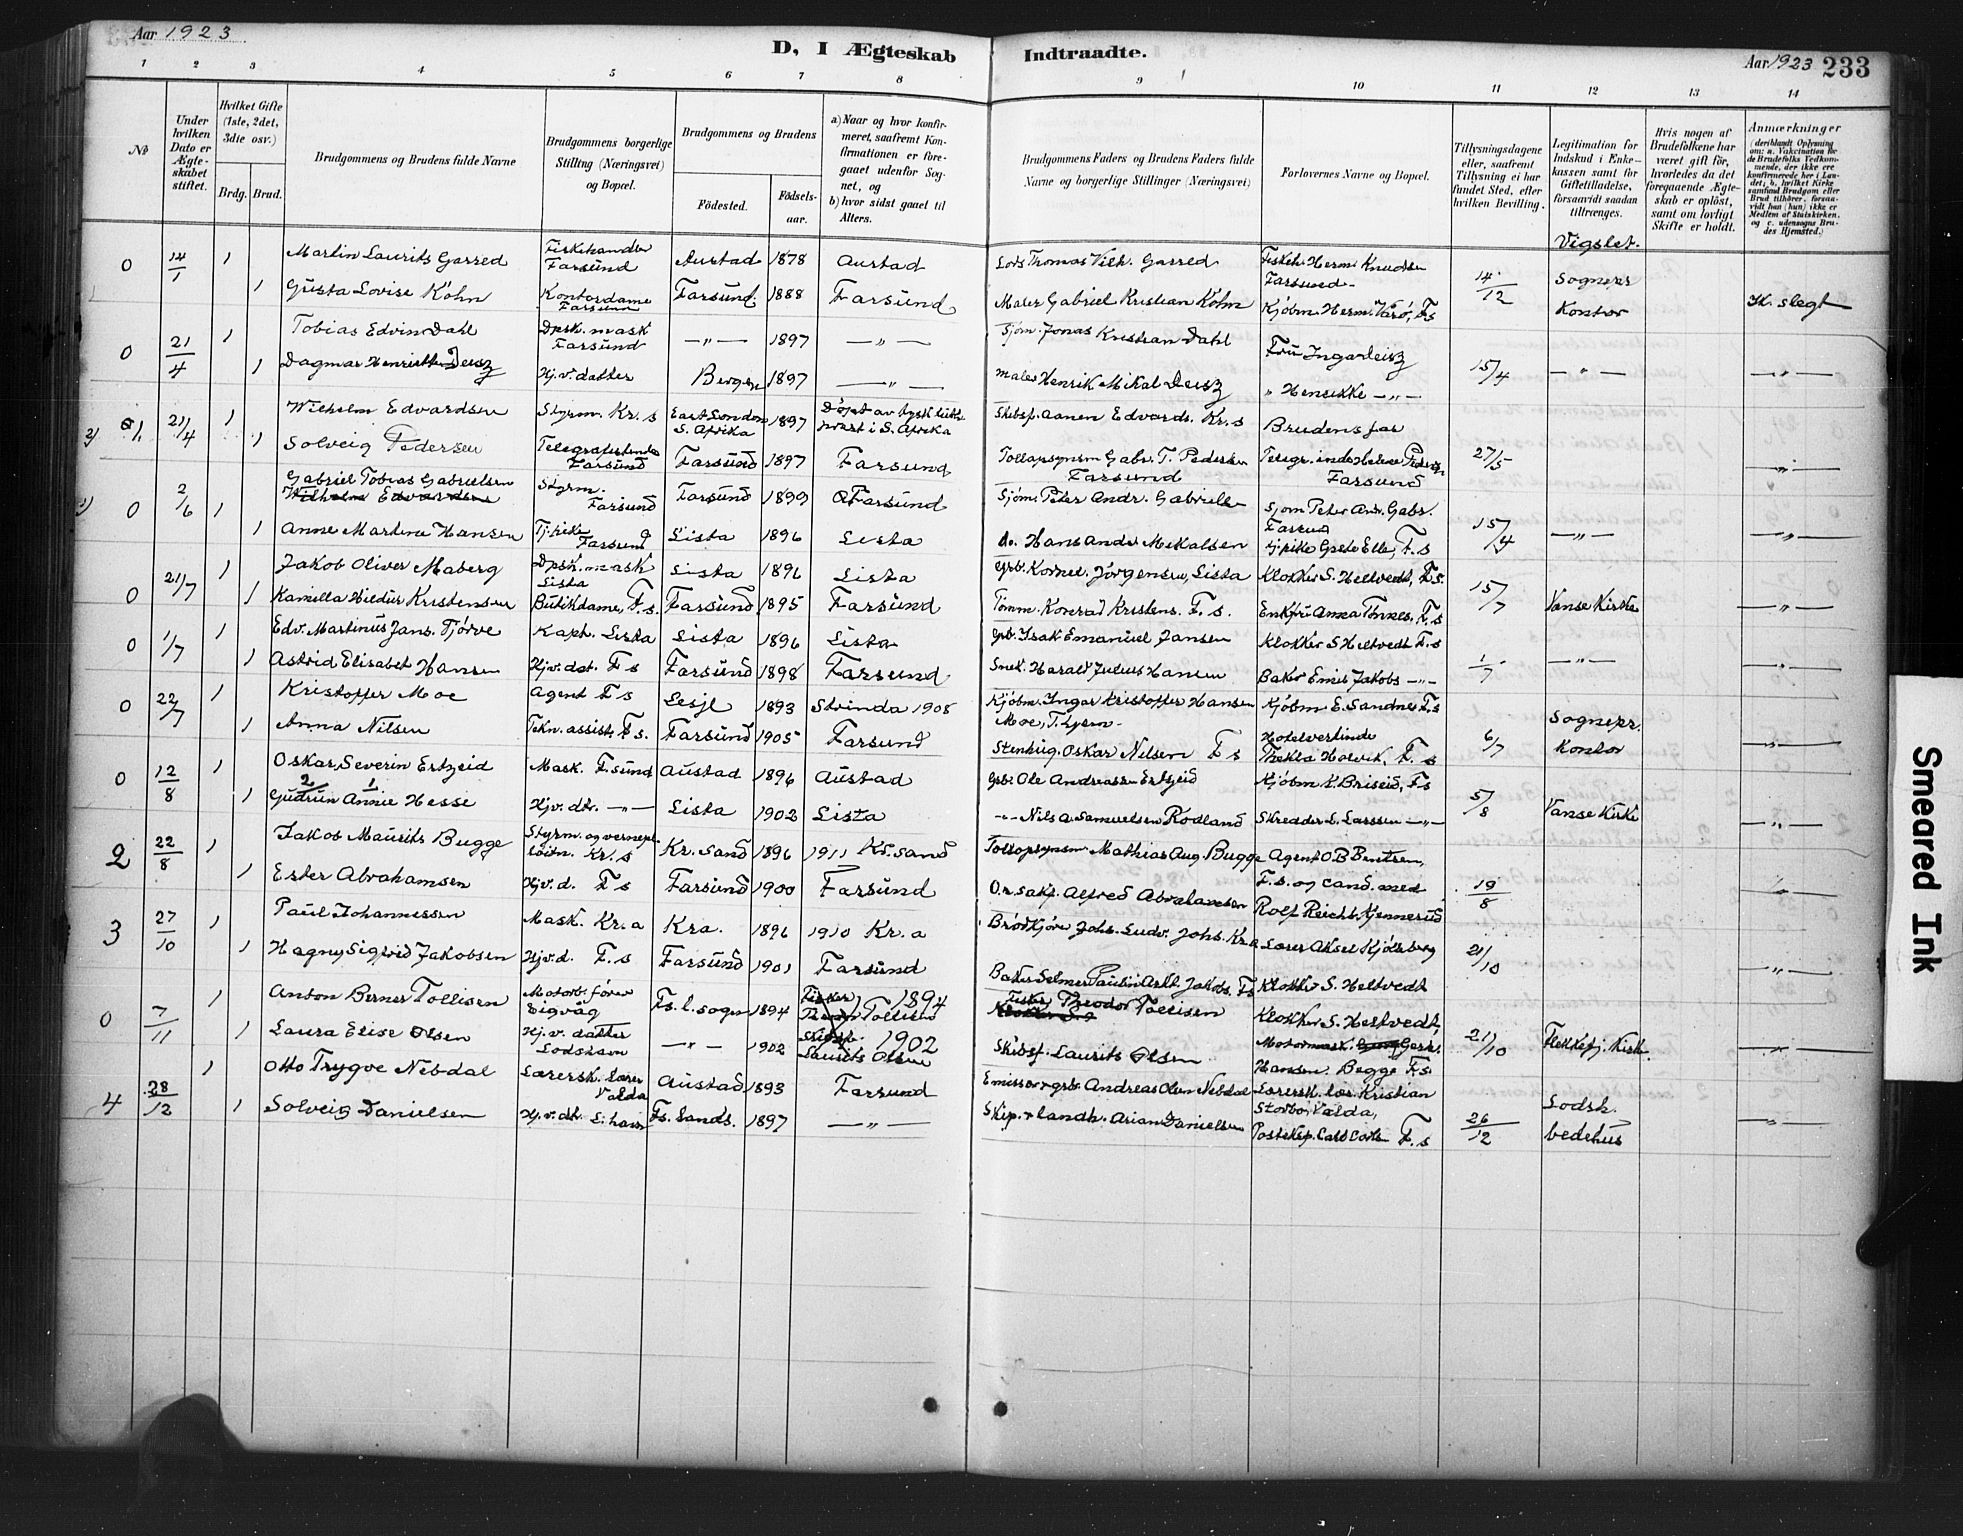 Aar 1923
D, I Ægteskab Indtraadte.
Aar 1923 233
1 2 3 4 5 6 7 8 9 10 11 12 13 14
No
Under hvilken Dato er Ægteskabet stiftet.
Hvilket Gifte (1ste, 2det, 3die osv.)
Brdg. Brud.
Brudgommens og Brudens fulde Navne
Brudgommens borgerlige Stilling (Næringsvei) og Bopæl.
Brudgommens og Brudens
Fødested. Fødselsaar.
a) Naar og hvor konfirmeret, saafremt Konfirmationen er foregaaet udenfor Sognet, og
b) hvor sidst gaaet til Alters.
Brudgommens Faders og Brudens Faders fulde Navne og borgerlige Stillinger (Næringsvei)
Forlovernes Navne og Bopæl.
Tillysningsdagene eller, saafremt Tillysning ei har fundet Sted, efter hvilken Bevilling.
Legitimation for Indskud i Enkekassen samt for Giftetilladelse, forsaavidt saadan tiltrænges.
Hvis nogen af Brudefolkene har været gift før, hvorledes da det foregaaende Ægteskab er opløst, samt om lovligt Skifte er holdt.
Anmærkninger
Vigslet.
0 14/1 1 Martin Laurits Garred Fiskehandler Farsund Austad 1878 Austad Lods Thomas Vilh. Garred Fiskeh. Herm. Knudsen Farsund 14/12 Sognepr
1 Gusta Lovise Köhn Kontordame Farsund Farsund 1888 Farsund Maler Gabriel Kristian Köhn Kjøbm. Herm. Varø, F.s Kontor Ik. slegt
0 21/4 1 Tobias Edvin Dahl Dpsk. mask Farsund —"— 1897 —"— Sjøm. Jonas Kristian Dahl Fru Inga Deisz 15/4 —"—
1 Dagmar Henriette Deisz Hj.v. datter Bergen 1897 —"— Maler Henrik Mikal Deisz " Henrikke —"— —"—
2) 21/4 1 Wilhelm Edvardsen Styrm. Kr.s East London S. Afrika 1897 Døpt av tysk luth. prest i S. Afrika Skibsf. Aanen Edvards. Kr.s Brudens far 27/5
1 Solveig Pedersen Farsund Farsund 1897 Farsund Tollopsynsm Gabr. T. Pedersen Farsund Farsund —"—
1) 0 2/6 1 Gabriel Tobias Gabrielsen Wilhelm Edvardsen Styrm. Farsund Farsund 1899 Farsund Sjøm. Peter Andr. Gabriels Sjøm Peter Andr. Gabr. Farsund 15/4 —"—
1 Anne Martine Hansen Tj.pike Farsund Lista 1896 Lista do. Hans Andr. Mikalsen Tj.pike Grete Elle, F.s —"—
0 21/7 1 Jakob Oliver Maberg Dpsk. mask Lista Lista 1896 Lista Grb. Kornel. Jörgensen, Lista Klokker S. Heltvedt, F.s. 15/7 Vanse Kirke
1 Kamilla Hildur Kristensen Butikdame, F.s. Farsund 1895 Farsund Tømm. Konrad Kristens. F.s. Enkfru Anna Tönnes. F.s —"—
0 1/7 1 Edv. Martinus Jans. Tjörve Kapt. Lista Lista 1896 Lista Grb. Isak Emanuel Jansen Klokker S Heltvedt F.s 1/7 —"—
1 Astrid Elisabet Hansen Hj.v.dat. F s Farsund 1898 Farsund Snek. Harald Julius Hansen Baker Emil Jakobs —"— —"—
0 22/7 1 Kristoffer Moe Agent F s Lesje 1893 Strinda 1908 Kjøbm. Ingar Kristoffer Hansen Moe, T.hjem Kjøbm E. Sandnes F.s 6/7 Sognepr. Kontor
1 Anna Nilsen Tekn. assist. F s. Farsund 1905 Farsund Stenhug. Oskar Nilsen F s Hotelvertinde Thekla Holvik, F. s —"—
0 12/8 1 Oskar Severin Ertzeid Mask. F.sund Austad 1896 Austad Grb. Ole Andreassen Ertzeid Kjøbm K. Briseid, F.s 5/8 Vanse Kirke
1 Gudrun Annie Hesse 2 1 Hj.v. dtr. —"— Lista 1902 Lista —"— Nils A. Samuelsen Rødland Skredder L. Larssen —"— —"—
2 22/8 1 Jakob Maurits Bugge Styrm. og vernepl. løitn. Kr.s Kr.sand 1896 1911 Kr.sand Tollopsynsm Mathias Aug. Bugge Agent O B Bentsen, 19/8
1 Ester Abrahamsen Hj.v.d. F s Farsund 1900 Farsund O.r.sakf. Alfred Abrahamsen F.s. og cand. med Rolf Reicht. Kjennerud —"—
3 27/10 1 Paul Johannessen Mask. Kr.a Kra. 1896 1910 Kr.a Brødkjører Johs. Ludv. Johs. Kr.a Lærer Aksel Kjølberg 21/10
1 Hagny Sigfrid Jakobsen Hj.v.d. F.s Farsund 1901 Farsund Baker Selmer Paulin Arht. Jakobs. F.s Klokker S. Heltvedt —"—
0 7/11 1 Anton Berner Tollisen Motorb.fører Eigvåg Fs. l.sogn 1894 Fisker Theodor Tollisen 1894 Fisker Theodor Tollisen Klokker S. Heltvedt, 21/10 Flekkefj. Kirke
1 Laura Elise Olsen Hj.v. datter —"— 1902 Skibsf. Laurits Olsen 1902 Skibsf. Laurits Olsen Hansen. Begge F.s. —"—
4 28/12 1 Otto Trygve Nebdal Lærersk. Lærer Valda Austad 1893 Farsund Emissær grb. Andreas Olsen Nebdal Lærersk. lær. Kristian Storbo, Valda, 26/12 Lodsh. bedehus
1 Solveig Danielsen Hj.v. dt. L.havn F.s. Lands. 1897 —"— Skip. landh. Arian Danielsen Posteksp. Carl Carls F.s —"—
Smeared Ink